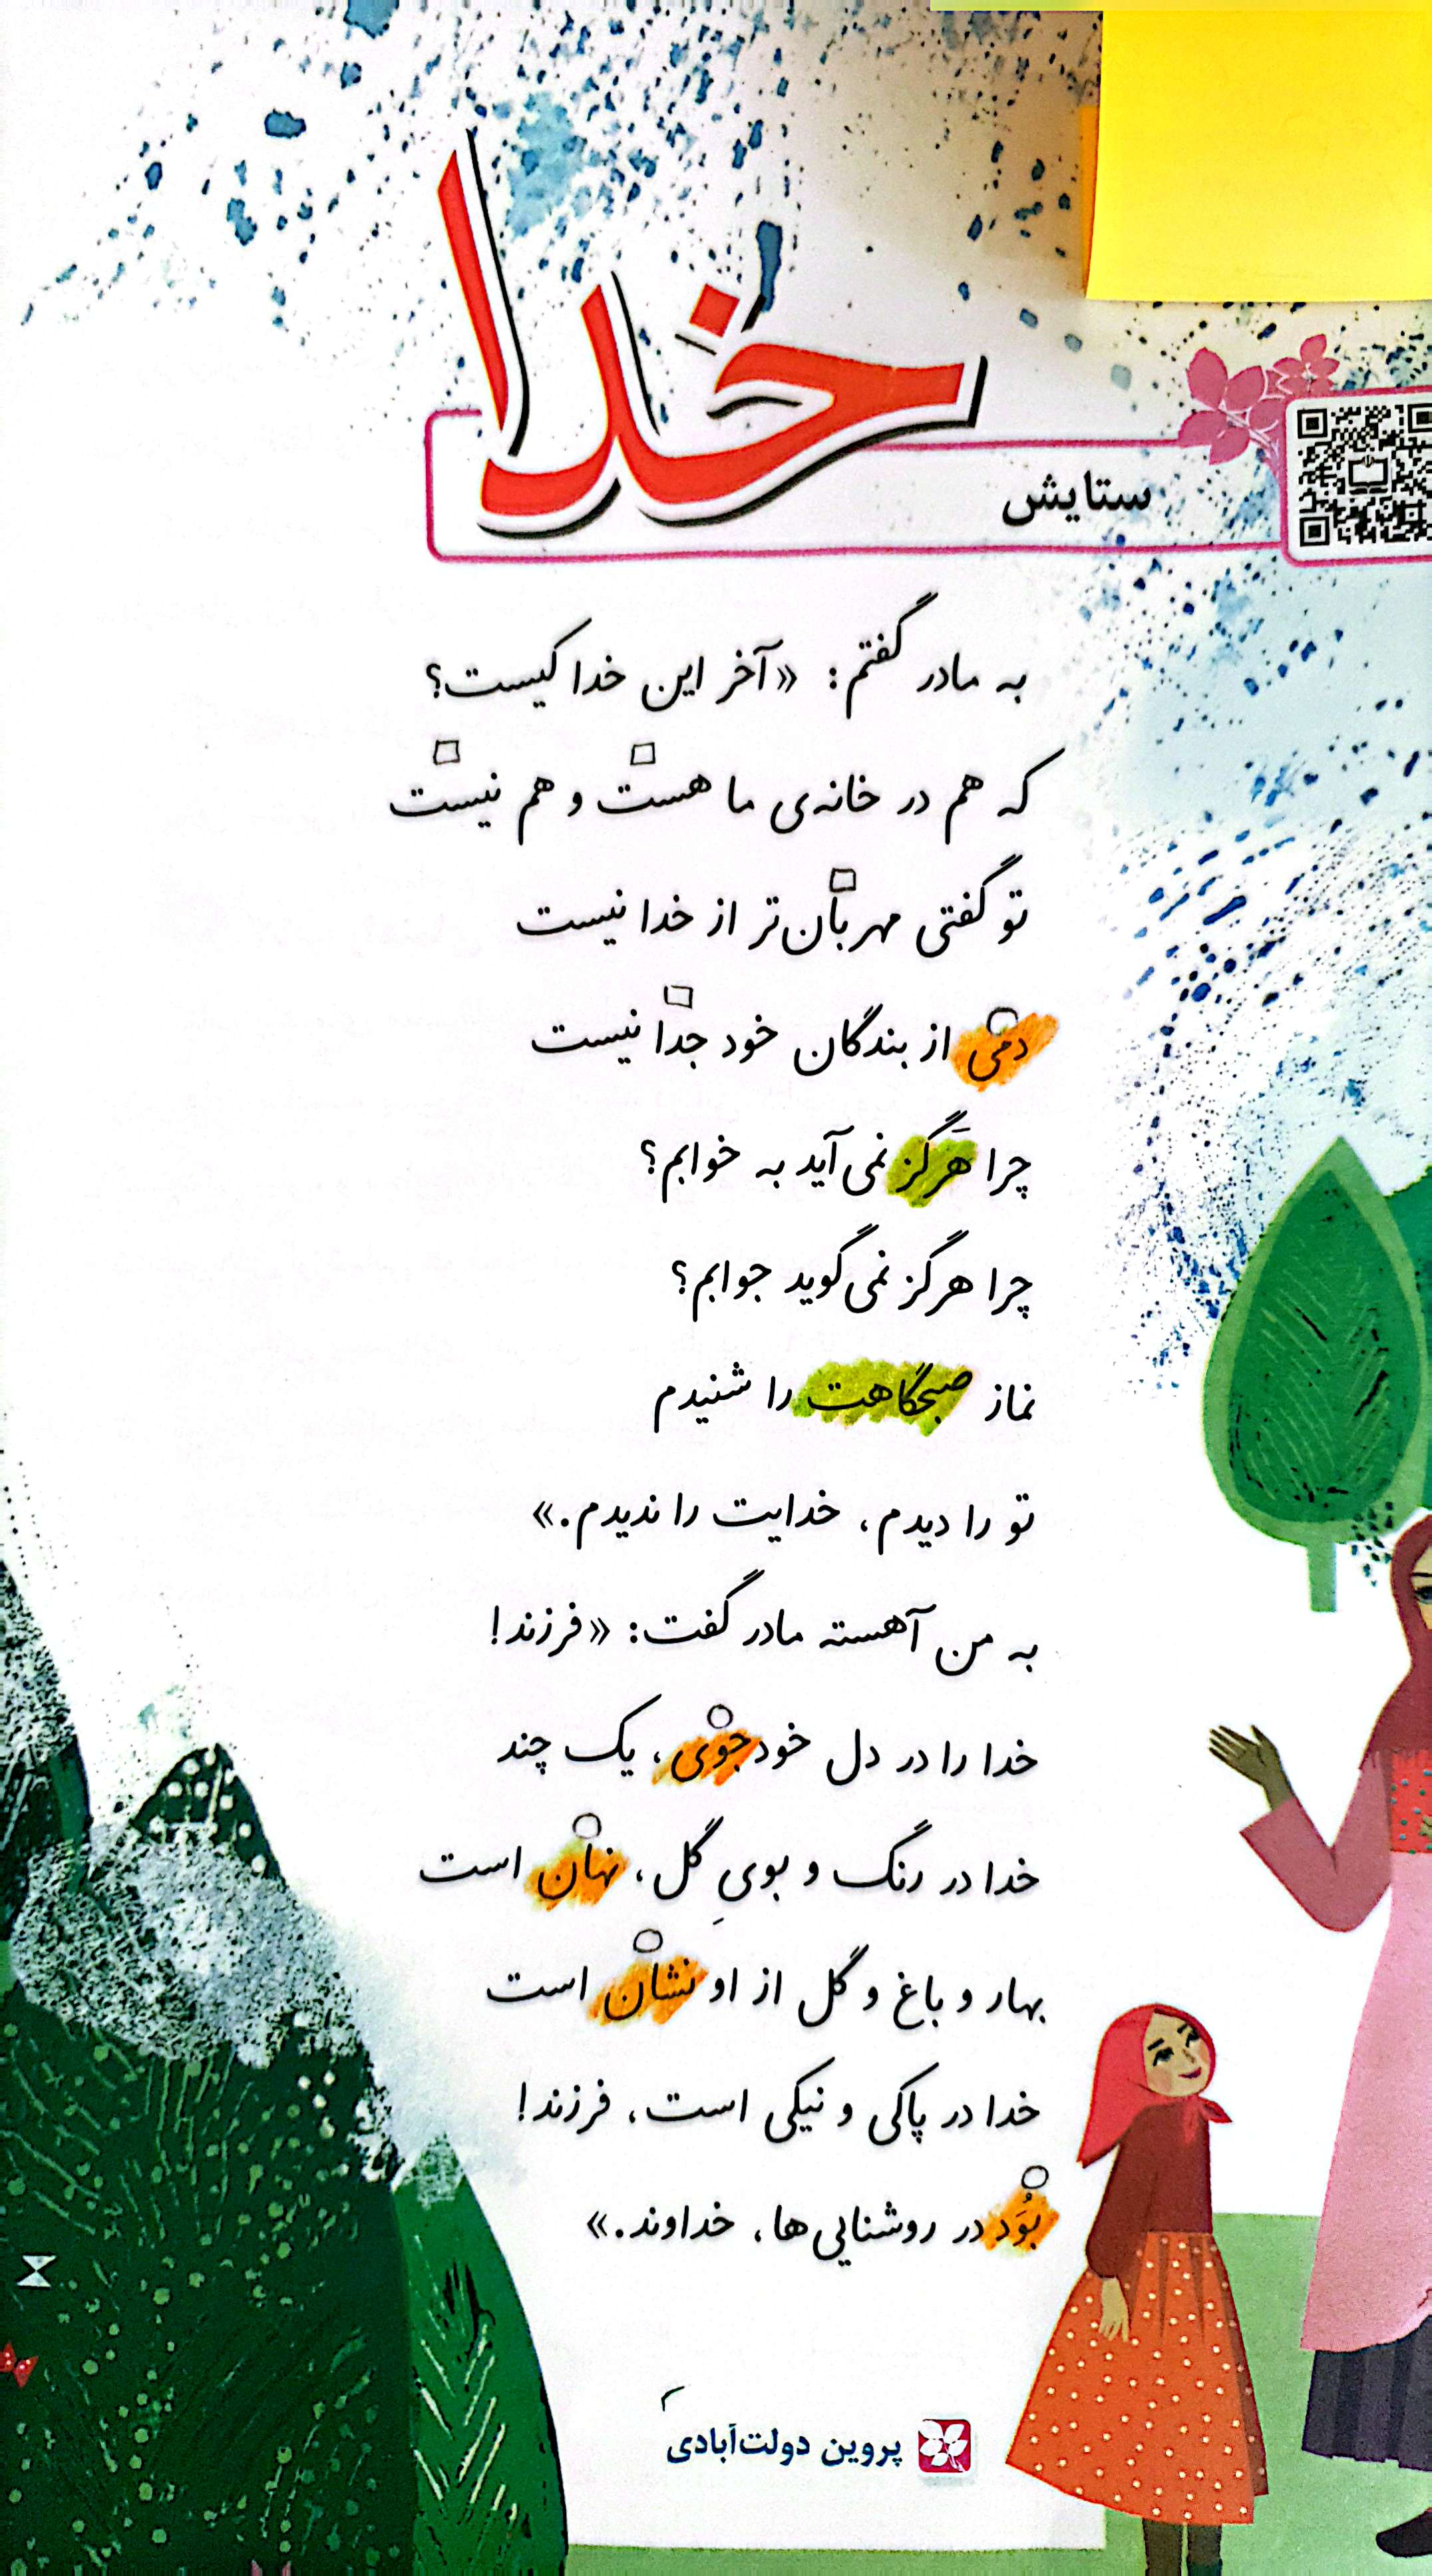 خدا
ستایش
به مادر گفتم: «آخر این خدا کیست؟
که هم در خانه‌ی ما هست و هم نیست
تو گفتی مهربان‌تر از خدا نیست
دمی از بندگان خود جدا نیست
چرا هَرگز نمی‌آید به خوابم؟
چرا هرگز نمی‌گوید جوابم؟
نماز صبحگاهت را شنیدم
تو را دیدم، خدایت را ندیدم.»
به من آهسته مادر گفت: «فرزند!
خدا را در دل خود جوی، یک چند
خدا در رنگ و بویِ گل، نهان است
بهار و باغ و گل از او نشان است
خدا در پاکی و نیکی است، فرزند!
بُوَد در روشنایی‌ها، خداوند.»
پروین دولت‌آبادی